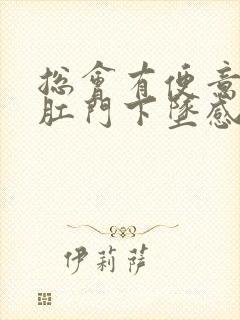 总會有便意
肛門下墜感
伊莉薩